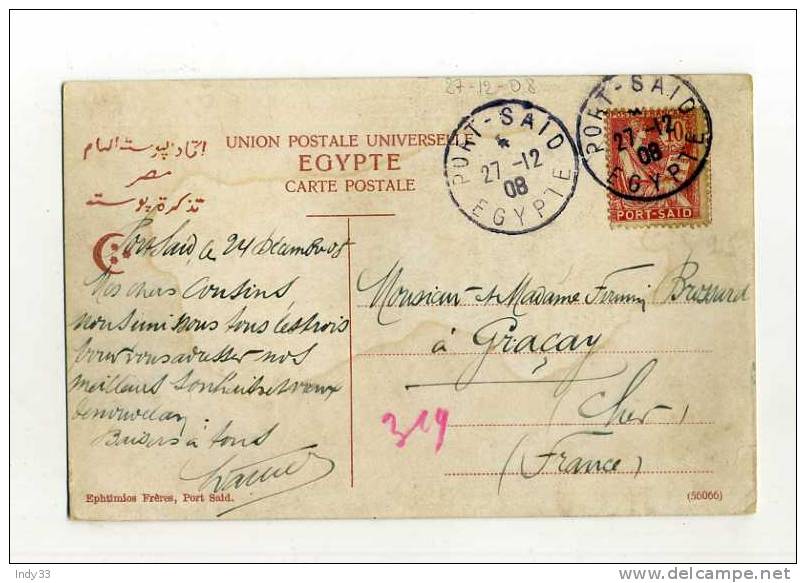 27-12-08
اتحاد پوستہ العام
مصر
تذكرة پوستة
UNION POSTALE UNIVERSELLE
EGYPTE
CARTE POSTALE
PORT-SAID
27-12
08
EGYPTE
PORT-SAID
27-12
08
EGYPTE
10
PORT-SAID
Port Said, le 24 décembre 08
Mes chers Cousins
nous tous les trois
pour vous adresser nos
meilleurs souhaits et vœux
de nouvel an.
Baisers à tous
Monsieur et Madame Brossard
à Graçay
Cher,
(France)
319
Ephtimios Frères, Port Said.
(56066)
Indy33
www.delcampe.net